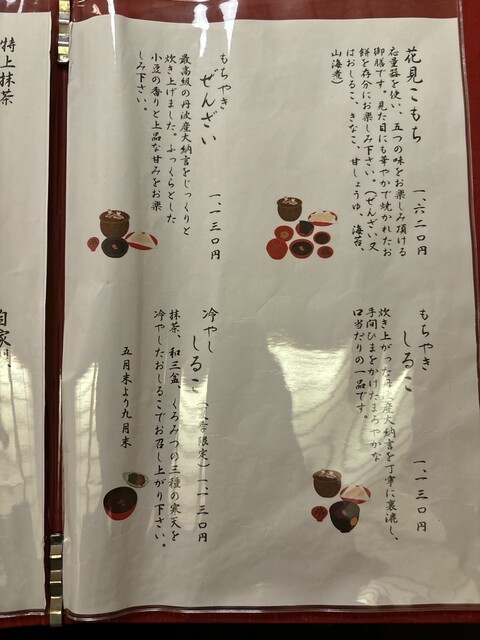 花見こもち
応量器を使い、五つの味をお楽しみ頂ける
御膳です。見た目にも華やかで焼かれたお
餅を存分にお楽しみ下さい。(ぜんざい又
はおしるこ、きなこ、甘しょうゆ、海苔、
山海煮)
一、六二〇円
もちやき
ぜんざい
最高級の丹波産大納言をじっくりと
炊き上げました。ふっくらとした
小豆の香りと上品な甘みをお楽
しみ下さい。
一、一三〇円
もちやき
しるこ
炊き上がった丹波産大納言を丁寧に裏漉し、
手間ひまをかけたまろやかな
口当たりの一品です。
一、一三〇円
冷やし
しるこ
限定)一、一三〇円
抹茶、和三盆、くろみつの三種の寒天を
冷やしたおしるこでお召し上がり下さい。
五月末より九月末
特上抹茶
自家